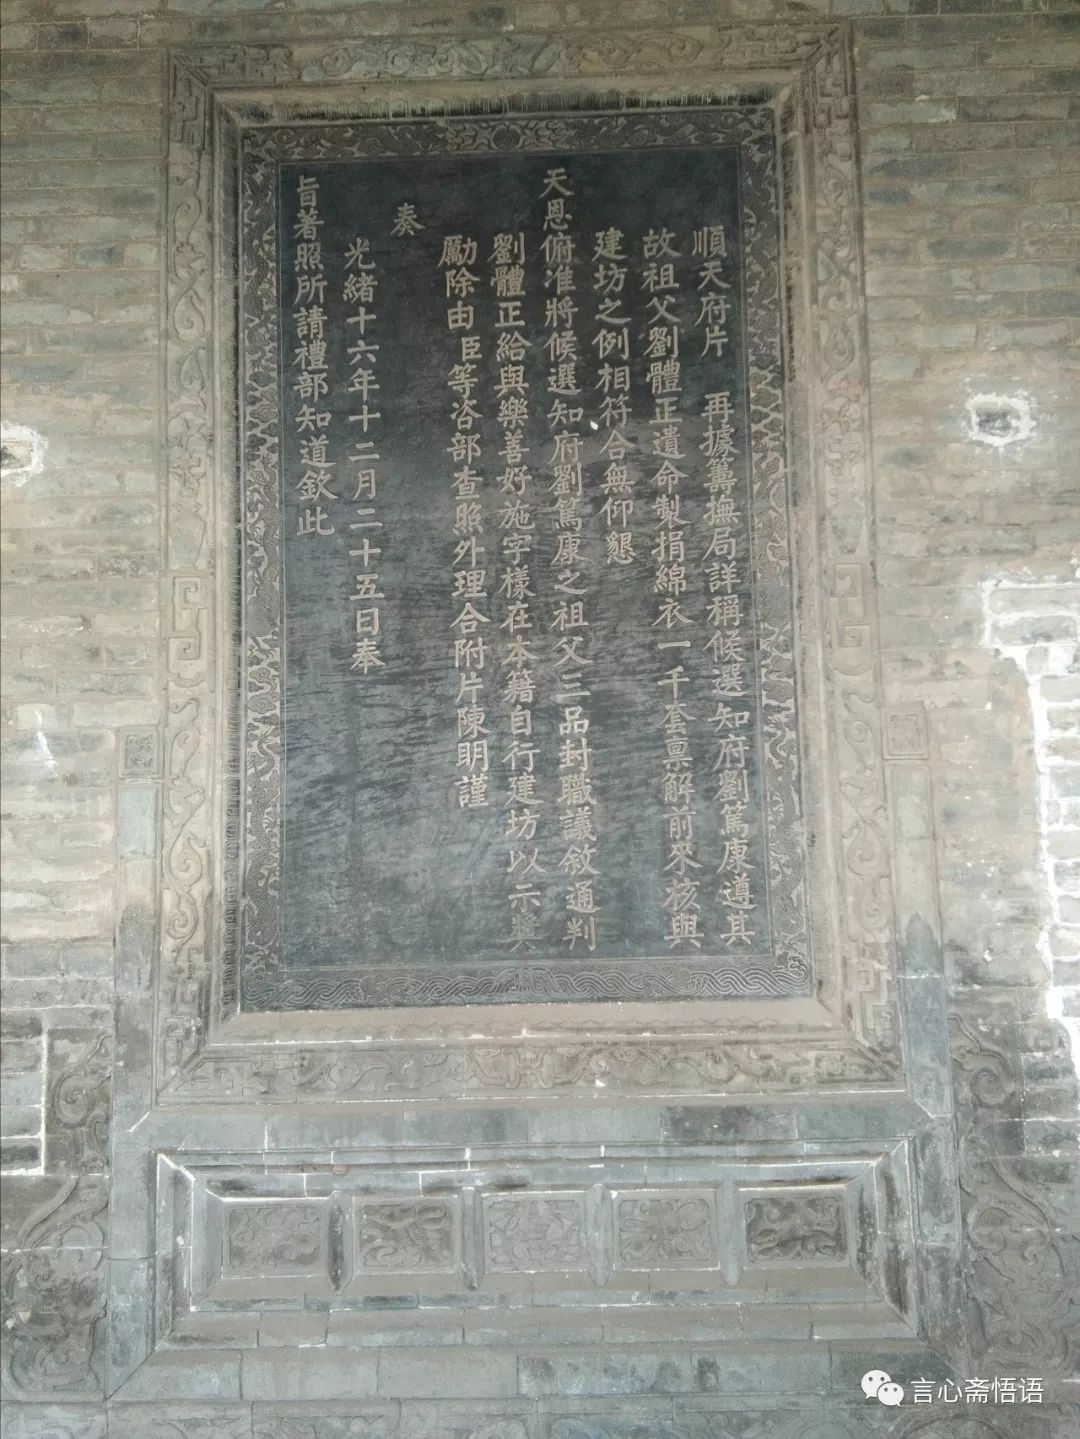 順天府片 再據籌撫局詳稱候選知府劉篤康遵其
故祖父劉體正遺命製捐綿衣一千套稟解前來核與
建坊之例相符合無仰懇
天恩俯准將候選知府劉篤康之祖父三品封職議敘通判
劉體正給與樂善好施字樣在本籍自行建坊以示獎
勵除由臣等咨部查照外理合附片陳明謹
奏
光緒十六年十二月二十五日奉
旨著照所請禮部知道欽此
言心斋悟语